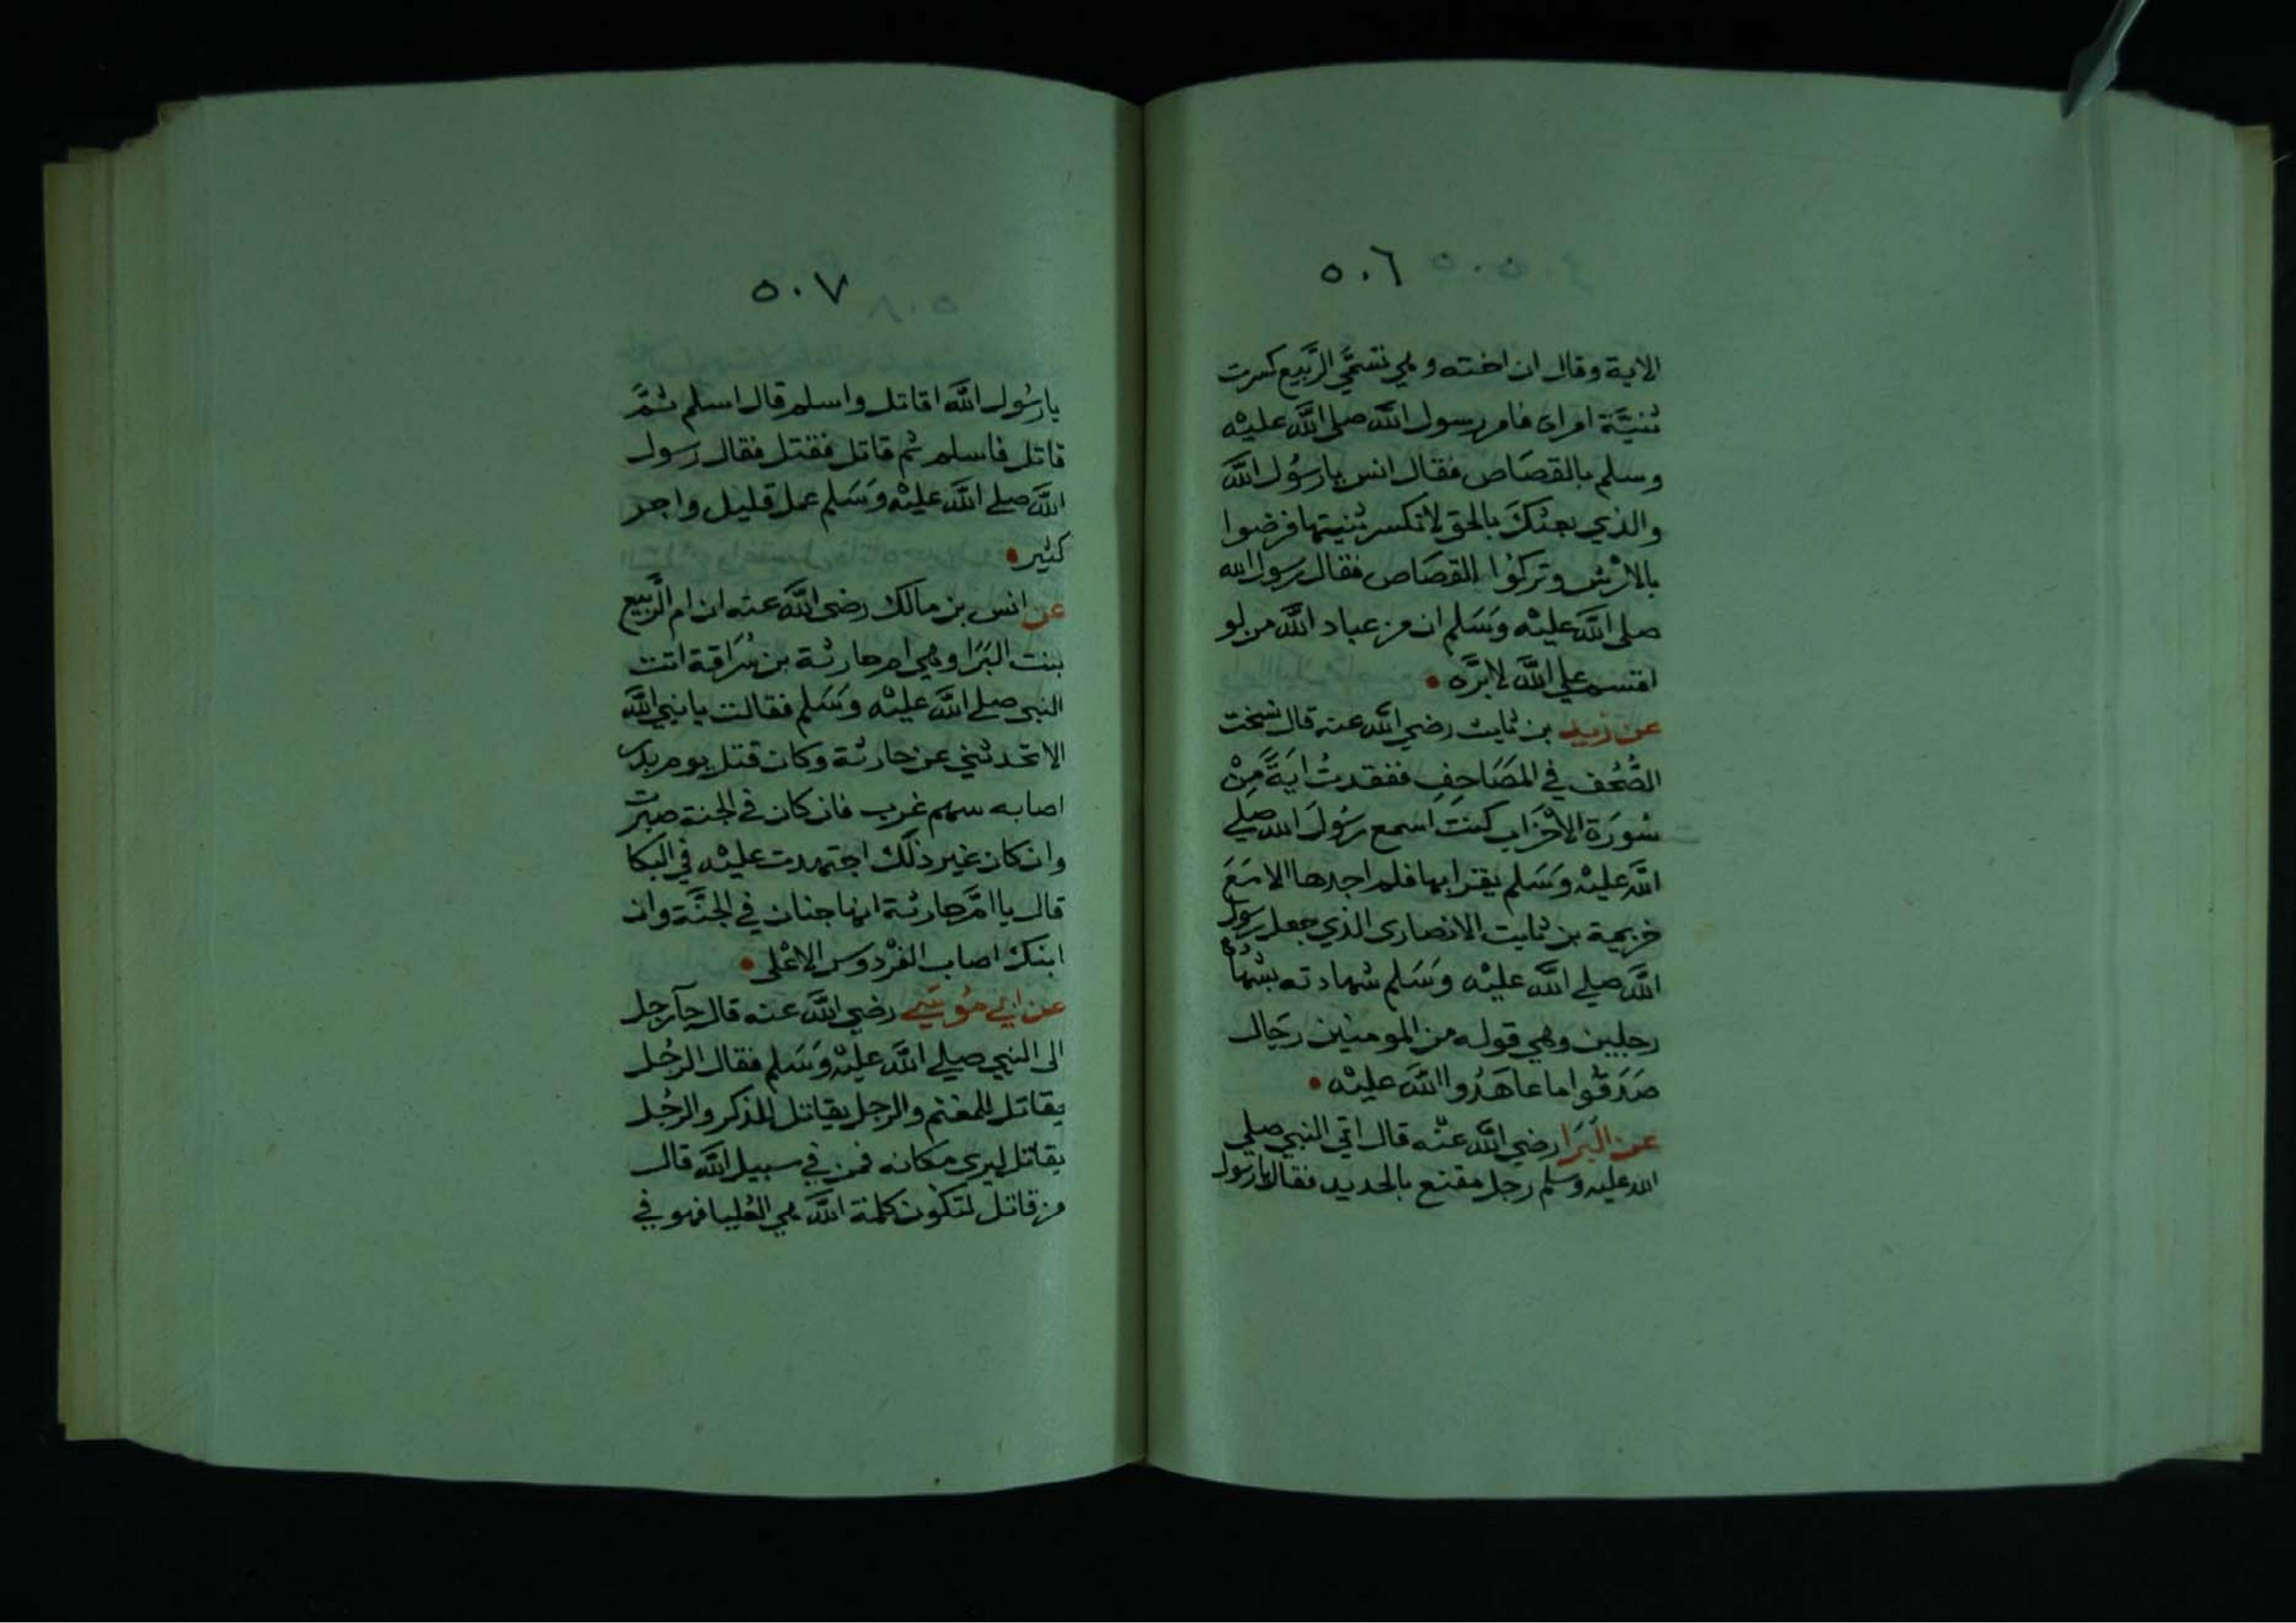 ٥٠٦
الاية وقال ان اخته وهي تسمَّي الرَّبيع كسرت
ثنيَّة امراة فامر رسول الله صلى الله عليه
وسلم بالقصَاص فقال انس يا رسُول الله
والذي بعثكَ بالحق لا تكسر ثنيتها فرضوا
بالارْش وتركوُا القصَاص فقال رسول الله
صلى الله عليْه وَسَلم ان من عباد الله من لو
اقسم علي الله لابرَّه •
عن زيد بن ثابت رضي الله عنه قال نسخت
الصُّحُف في المصَاحِفِ ففقدتُ ايَةً مِنْ
سُورَة الاحْزَاب كنت اسمع رسُولَ الله صلي
الله عليْه وَسَلم يقرا بها فلم اجدها الا مَعَ
خزيمة بن ثابت الانصارى الذي جعل رسول
الله صلي الله عليْه وَسَلم شهادته بشهادة
رجلين وهي قوله من المومنين رجَال
صَدَقُوا ما عاهَدُوا الله عليْه •
عن البَرَا رضي الله عنْه قال اتي النبي صلي
الله عليه وسلم رجل مقنع بالحديد فقال يا رسول
٥٠٧
يا رسُول الله اقاتل واسلم قال اسلم ثمَّ
قاتل فاسلم ثم قاتل فقتل فقال رسول
الله صلي الله عليْه وَسَلم عمل قليل واجر
كثير •
عن انس بن مالك رضي الله عنه ان ام الرَّبيع
بنت البَرَا وهي ام حارثة بن سُرَاقة اتت
النبي صلي الله عليْه وَسَلم فقالت يا نبي الله
الا تحدثني عن حارثة وكان قتل يوم بدر
اصابه سهم غرب فان كان في الجنة صبرت
وان كان غير ذلك اجتهدت عليْه في البكا
قال يا امَّ حارثة انها جنان في الجنَّة وان
ابنك اصاب الفرْدوس الاعْلى •
عن ابي مُوسَي رضي الله عنه قال جآ رجل
الى النبي صلي الله عليْه وَسَلم فقال الرجُل
يقاتل للمغنم والرجل يقاتل للذكر والرجُل
يقاتل ليرى مكانه فمن في سبيل الله قال
من قاتل لتكوُن كلمة الله هي العُليا فهو في